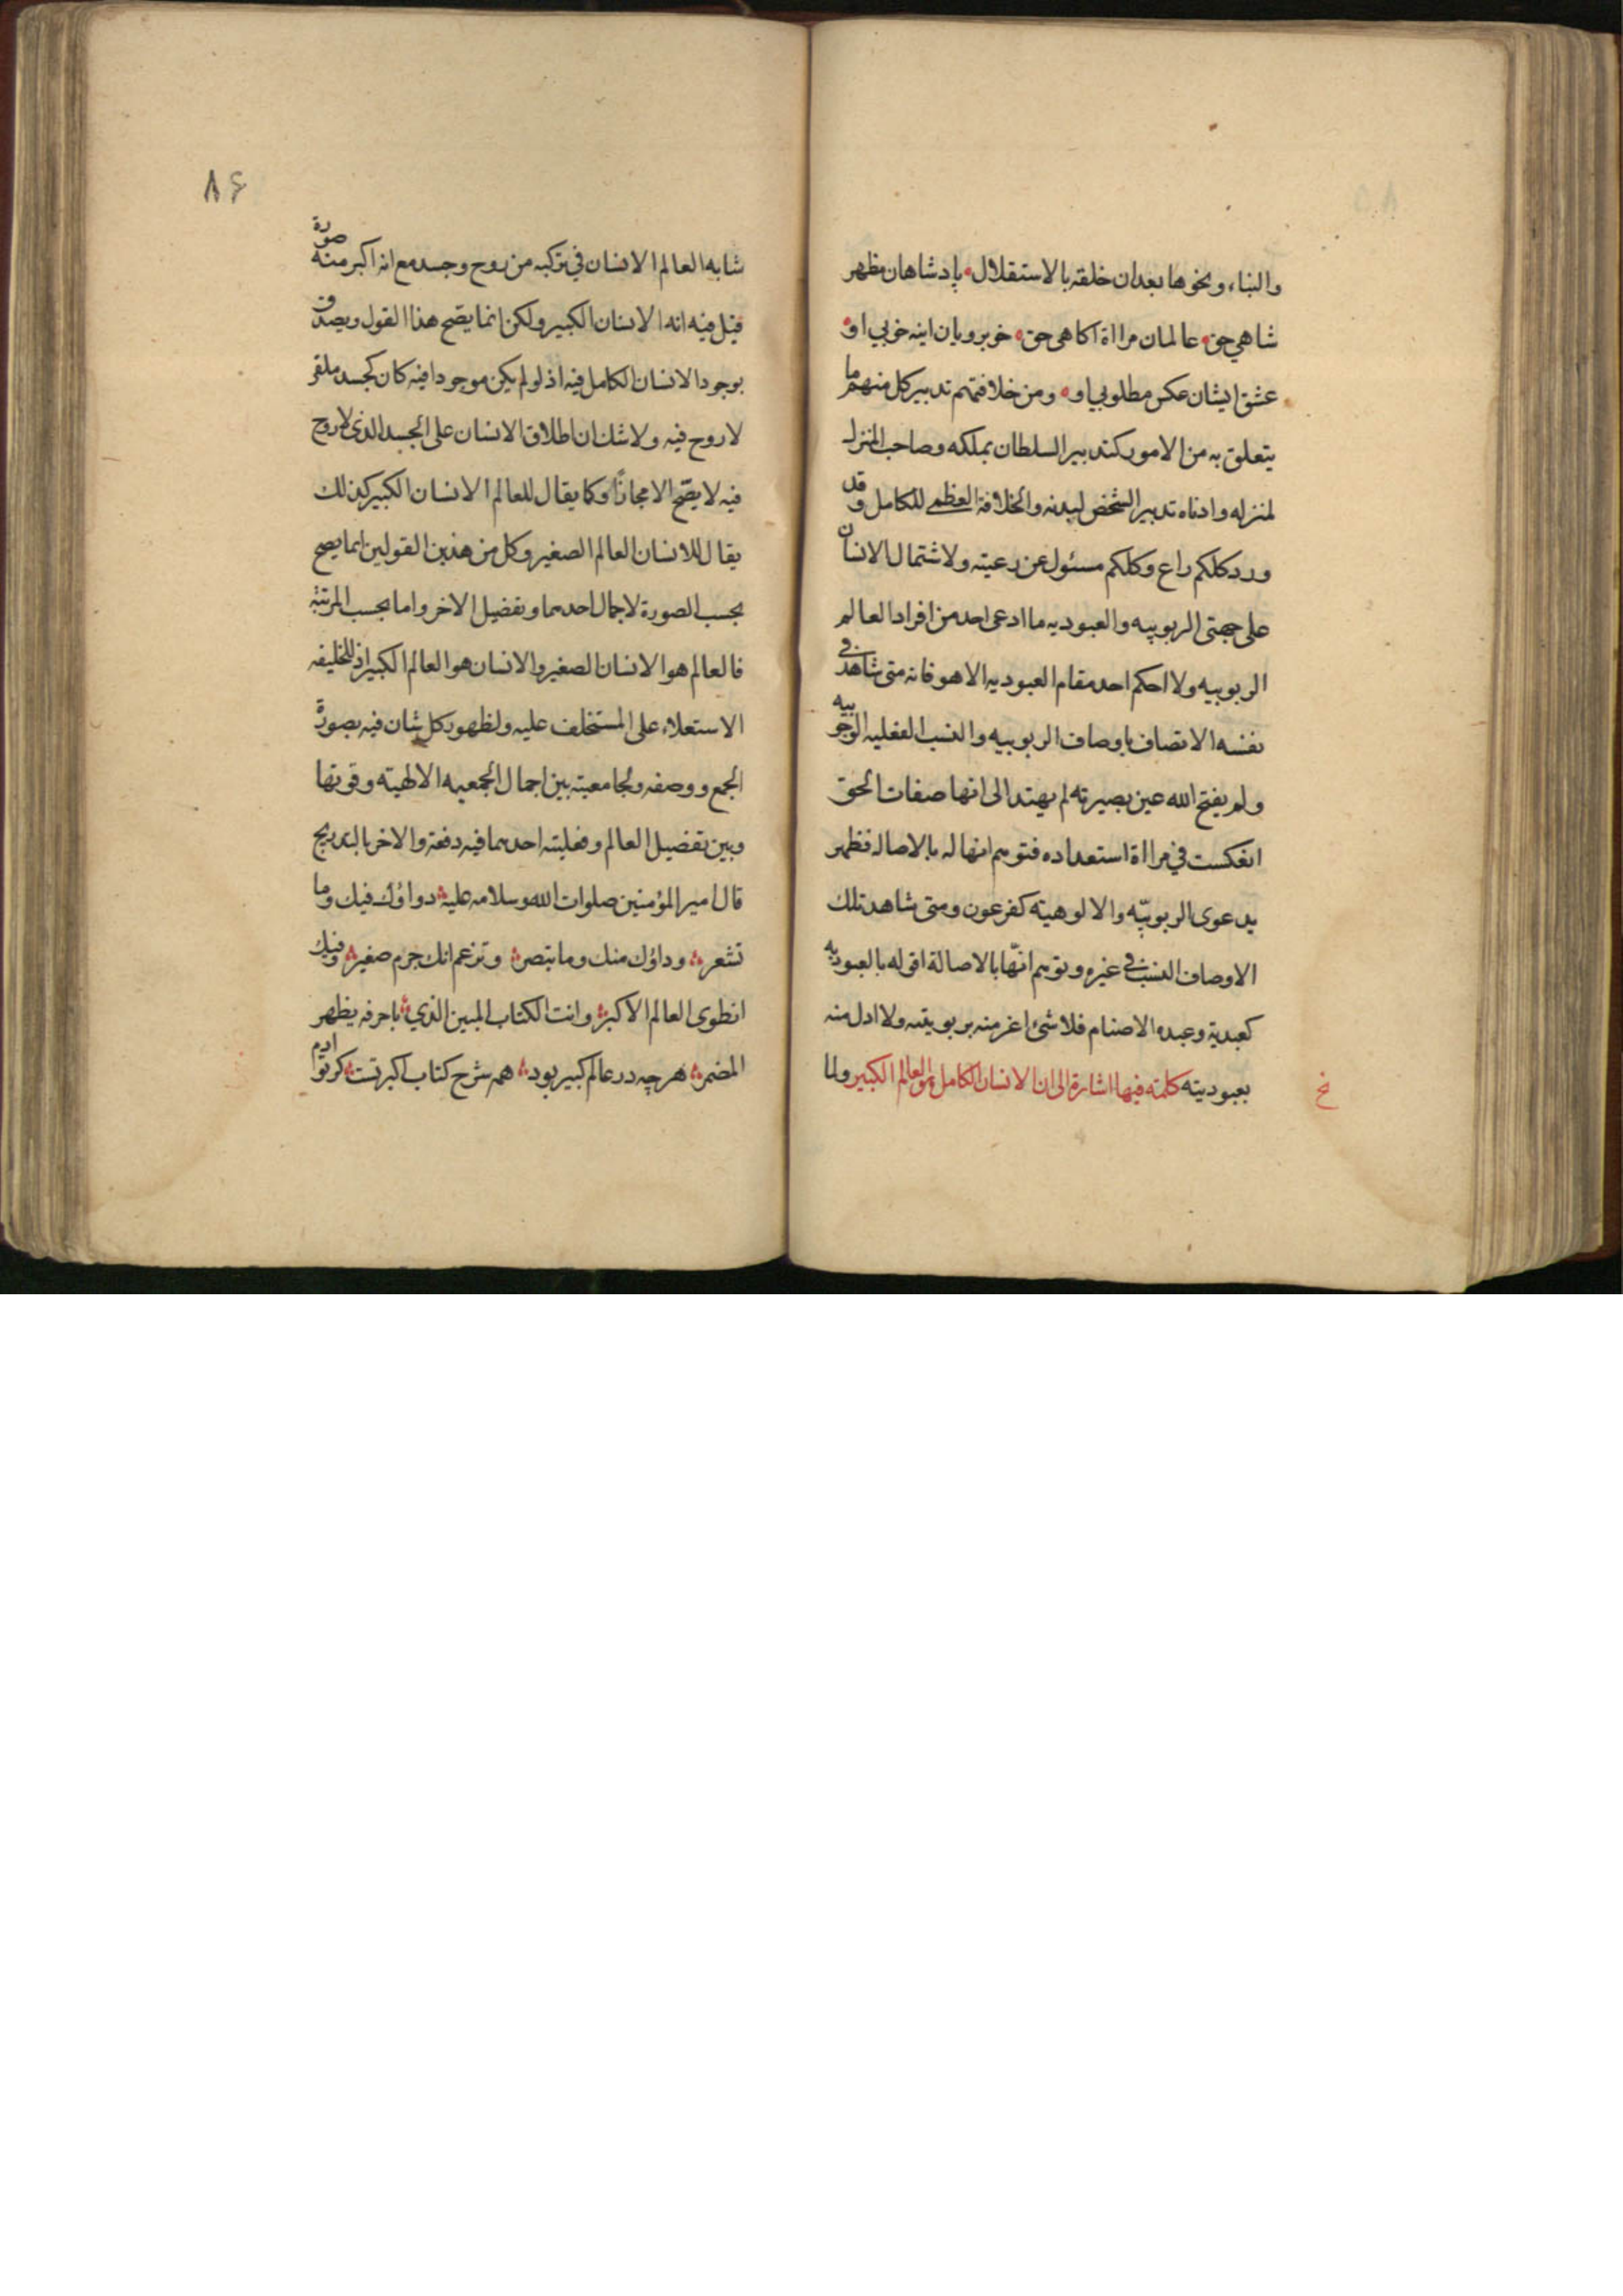 والبناء ونحوها بعد ان خلقته بالاستقلال پادشاهان مظهر
شاهي حق عالمان مراة اكاهى حق خوبرويان اينه خوبي او
عشق ايشان عكس مطلوبي او ومن خلافتهم تدبير كل منهم ما
يتعلق به من الامور كتدبير السلطان بملكه وصاحب المنزل
لمنزله وادناه تدبير الشخص لبدنه والخلافة العظمى للكامل وقد
ورد كلكم راع وكلكم مسئول عن رعيته ولاشتمال الانسان
على جهتى الربوبيه والعبوديه ما ادعى احد من افراد العالم
الربوبيه ولا احكم احد مقام العبوديه الا هو فانه متى شاهد في
نفسه الاتصاف باوصاف الربوبيه والنسب الفعليه الوجوبيه
ولم يفتح الله عين بصيرته لم يهتد الى انها صفات الحق
انعكست في مراة استعداده فتوهم انها له بالاصاله فظهر
بدعوى الربوبيّه والالوهيته كفرعون ومتى شاهد تلك
الاوصاف النسب في غيره وتوهم انّها بالاصالة اقوله بالعبوديه
كعبدية وعبده الاصنام فلا شئ اعز منه بربوبيته ولا اذل منه
بعبوديته كلمته فيها اشارة الى ان الانسان الكامل هو العالم الكبير ولما
خ
٨٤
شابه العالم الانسان في تركبه من روح وجسد مع انه اكبر منه صورة
قيل فيه انه الانسان الكبير ولكن انما يصح هذا القول ويصدق
بوجود الانسان الكامل فيه اذ لو لم يكن موجودا فيه كان كجسد ملقى
لا روح فيه ولا شك ان اطلاق الانسان على الجسد الذى لا روح
فيه لا يصّح الا مجازاً وكما يقال للعالم الانسان الكبير كذلك
يقال للانسان العالم الصغير وكل من هذين القولين انما يصح
بحسب الصورة لاجمال احدهما وتفضيل الاخر واما بحسب المرتبة
فالعالم هو الانسان الصغير والانسان هو العالم الكبير اذ للخليفه
الاستعلاء على المستخلف عليه ولظهور كل شان فيه بصورة
الجمع ووصفه ولجامعيته بين اجمال الجمعيه الالهيته وقوتها
وبين تفضيل العالم وفعليته احدهما فيه دفعة والاخر بالتدريج
قال امير المؤمنين صلوات الله وسلامه عليه دواؤك فيك وما
تشعر وداؤك منك وما تبصر وتزعم انك جرم صغير وفيك
انطوى العالم الاكبر وانت الكتاب المبين الذي باحرفه يظهر
المضمر هر چه در عالم كبير بود همه شرح كتاب اكبر تست كر تو ادم